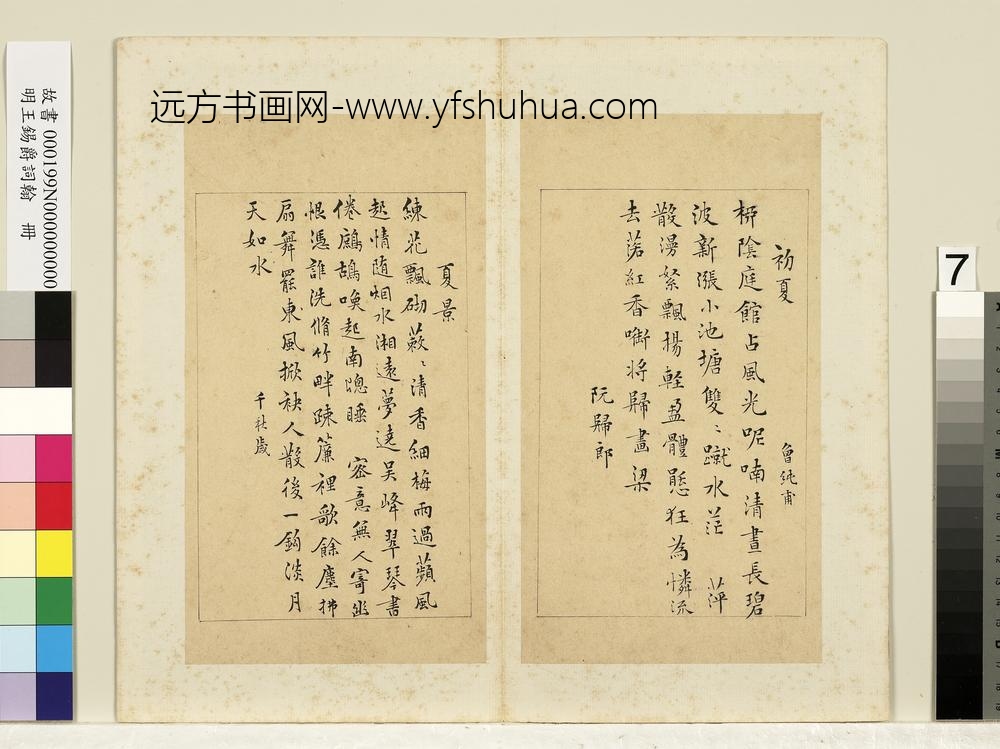 远方书画网-www.yfshuhua.com
故書 000199N000000000
明王錫爵詞翰 冊
7
初夏 曾純甫
栁陰庭館占風光呢喃清晝長碧
波新漲小池塘雙〻蹴水茫 萍
散漫絮飄揚輕盈體態狂為憐流
去落紅香啣將歸畫梁
阮歸郎
夏景
練花飄砌蔌〻清香細梅雨過蘋風
起情随烟水湘遠夢遶吳峰翠琴書
倦鷓鴣喚起南牕睡 密意無人寄幽
恨憑誰洗脩竹畔疎簾裡歌餘塵拂
扇舞罷東風掀袂人散後一鈎淡月
天如水
千秋歲